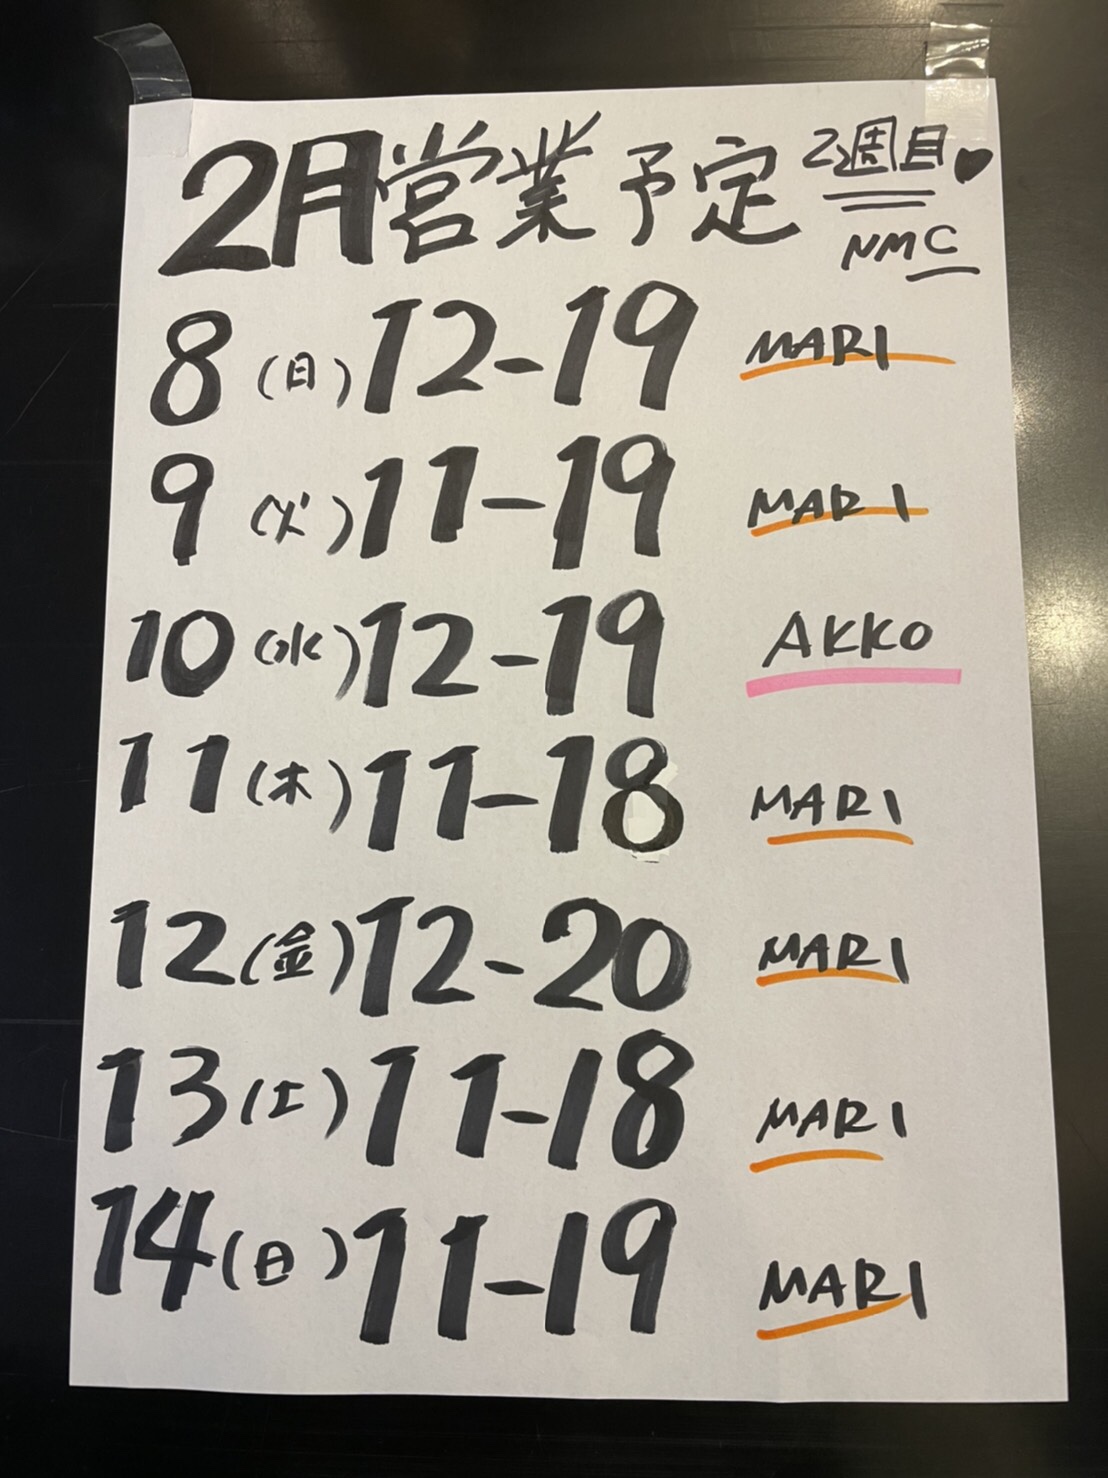 2月営業予定 2週目♥
NMC
8(日)12-19 MARI
9(火)11-19 MARI
10(水)12-19 AKKO
11(木)11-18 MARI
12(金)12-20 MARI
13(土)11-18 MARI
14(日)11-19 MARI